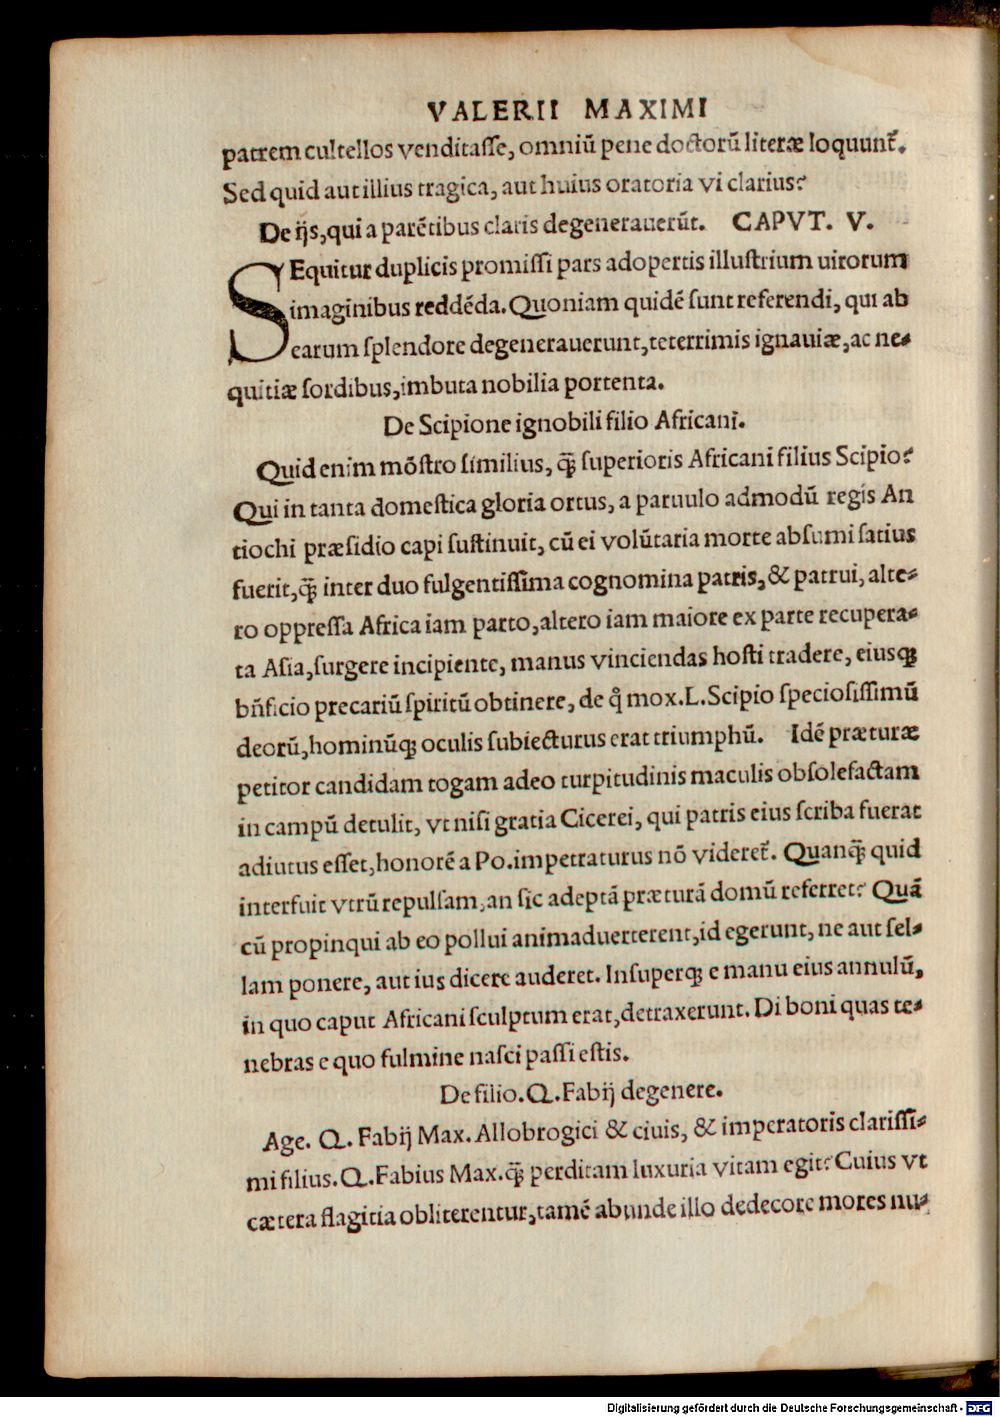 VALERII MAXIMI
patrem cultellos venditaſſe, omniū pene doctorū literæ loquunt᷑.
Sed quid aut illius tragica, aut huius oratoria vi clarius?
De ijs, qui a parētibus claris degenerauerūt. CAPVT. V.
SEquitur duplicis promiſſi pars adopertis illuſtrium uirorum
imaginibus reddēda. Quoniam quidē ſunt referendi, qui ab
earum ſplendore degenerauerunt, teterrimis ignauiæ, ac ne-
quitiæ ſordibus, imbuta nobilia portenta.
De Scipione ignobili filio Africani.
Quid enim mōſtro ſimilius, q̄ꝫ ſuperioris Africani filius Scipio?
Qui in tanta domeſtica gloria ortus, a paruulo admodū regis An
tiochi præſidio capi ſuſtinuit, cū ei volūtaria morte abſumi ſatius
fuerit, q̄ꝫ inter duo fulgentiſſima cognomina patris, & patrui, alte-
ro oppreſſa Africa iam parto, altero iam maiore ex parte recupera-
ta Aſia, ſurgere incipiente, manus vinciendas hoſti tradere, eiusqꝫ
bn̄ficio precariū ſpiritū obtinere, de q̊ mox. L. Scipio ſpecioſiſſimū
deorū, hominūqꝫ oculis ſubiecturus erat triumphū. Idē præturæ
petitor candidam togam adeo turpitudinis maculis obſolefactam
in campū detulit, vt niſi gratia Cicerei, qui patris eius ſcriba fuerat
adiutus eſſet, honorē a Po. impetraturus nō videret᷑. Quanq̄ꝫ quid
interfuit vtrū repulſam, an ſic adeptā præturā domū referret? Quā
cū propinqui ab eo pollui animaduerterent, id egerunt, ne aut ſel-
lam ponere, aut ius dicere auderet. Inſuperqꝫ e manu eius annulū,
in quo caput Africani ſculptum erat, detraxerunt. Di boni quas te-
nebras e quo fulmine naſci paſſi eſtis.
De filio. Q. Fabij degenere.
Age. Q. Fabij Max. Allobrogici & ciuis, & imperatoris clariſſi-
mi filius. Q. Fabius Max. q̄ꝫ perditam luxuria vitam egit? Cuius vt
cætera flagitia obliterentur, tamē abunde illo dedecore mores nu-
Digitalisierung gefördert durch die Deutsche Forschungsgemeinschaft - DFG